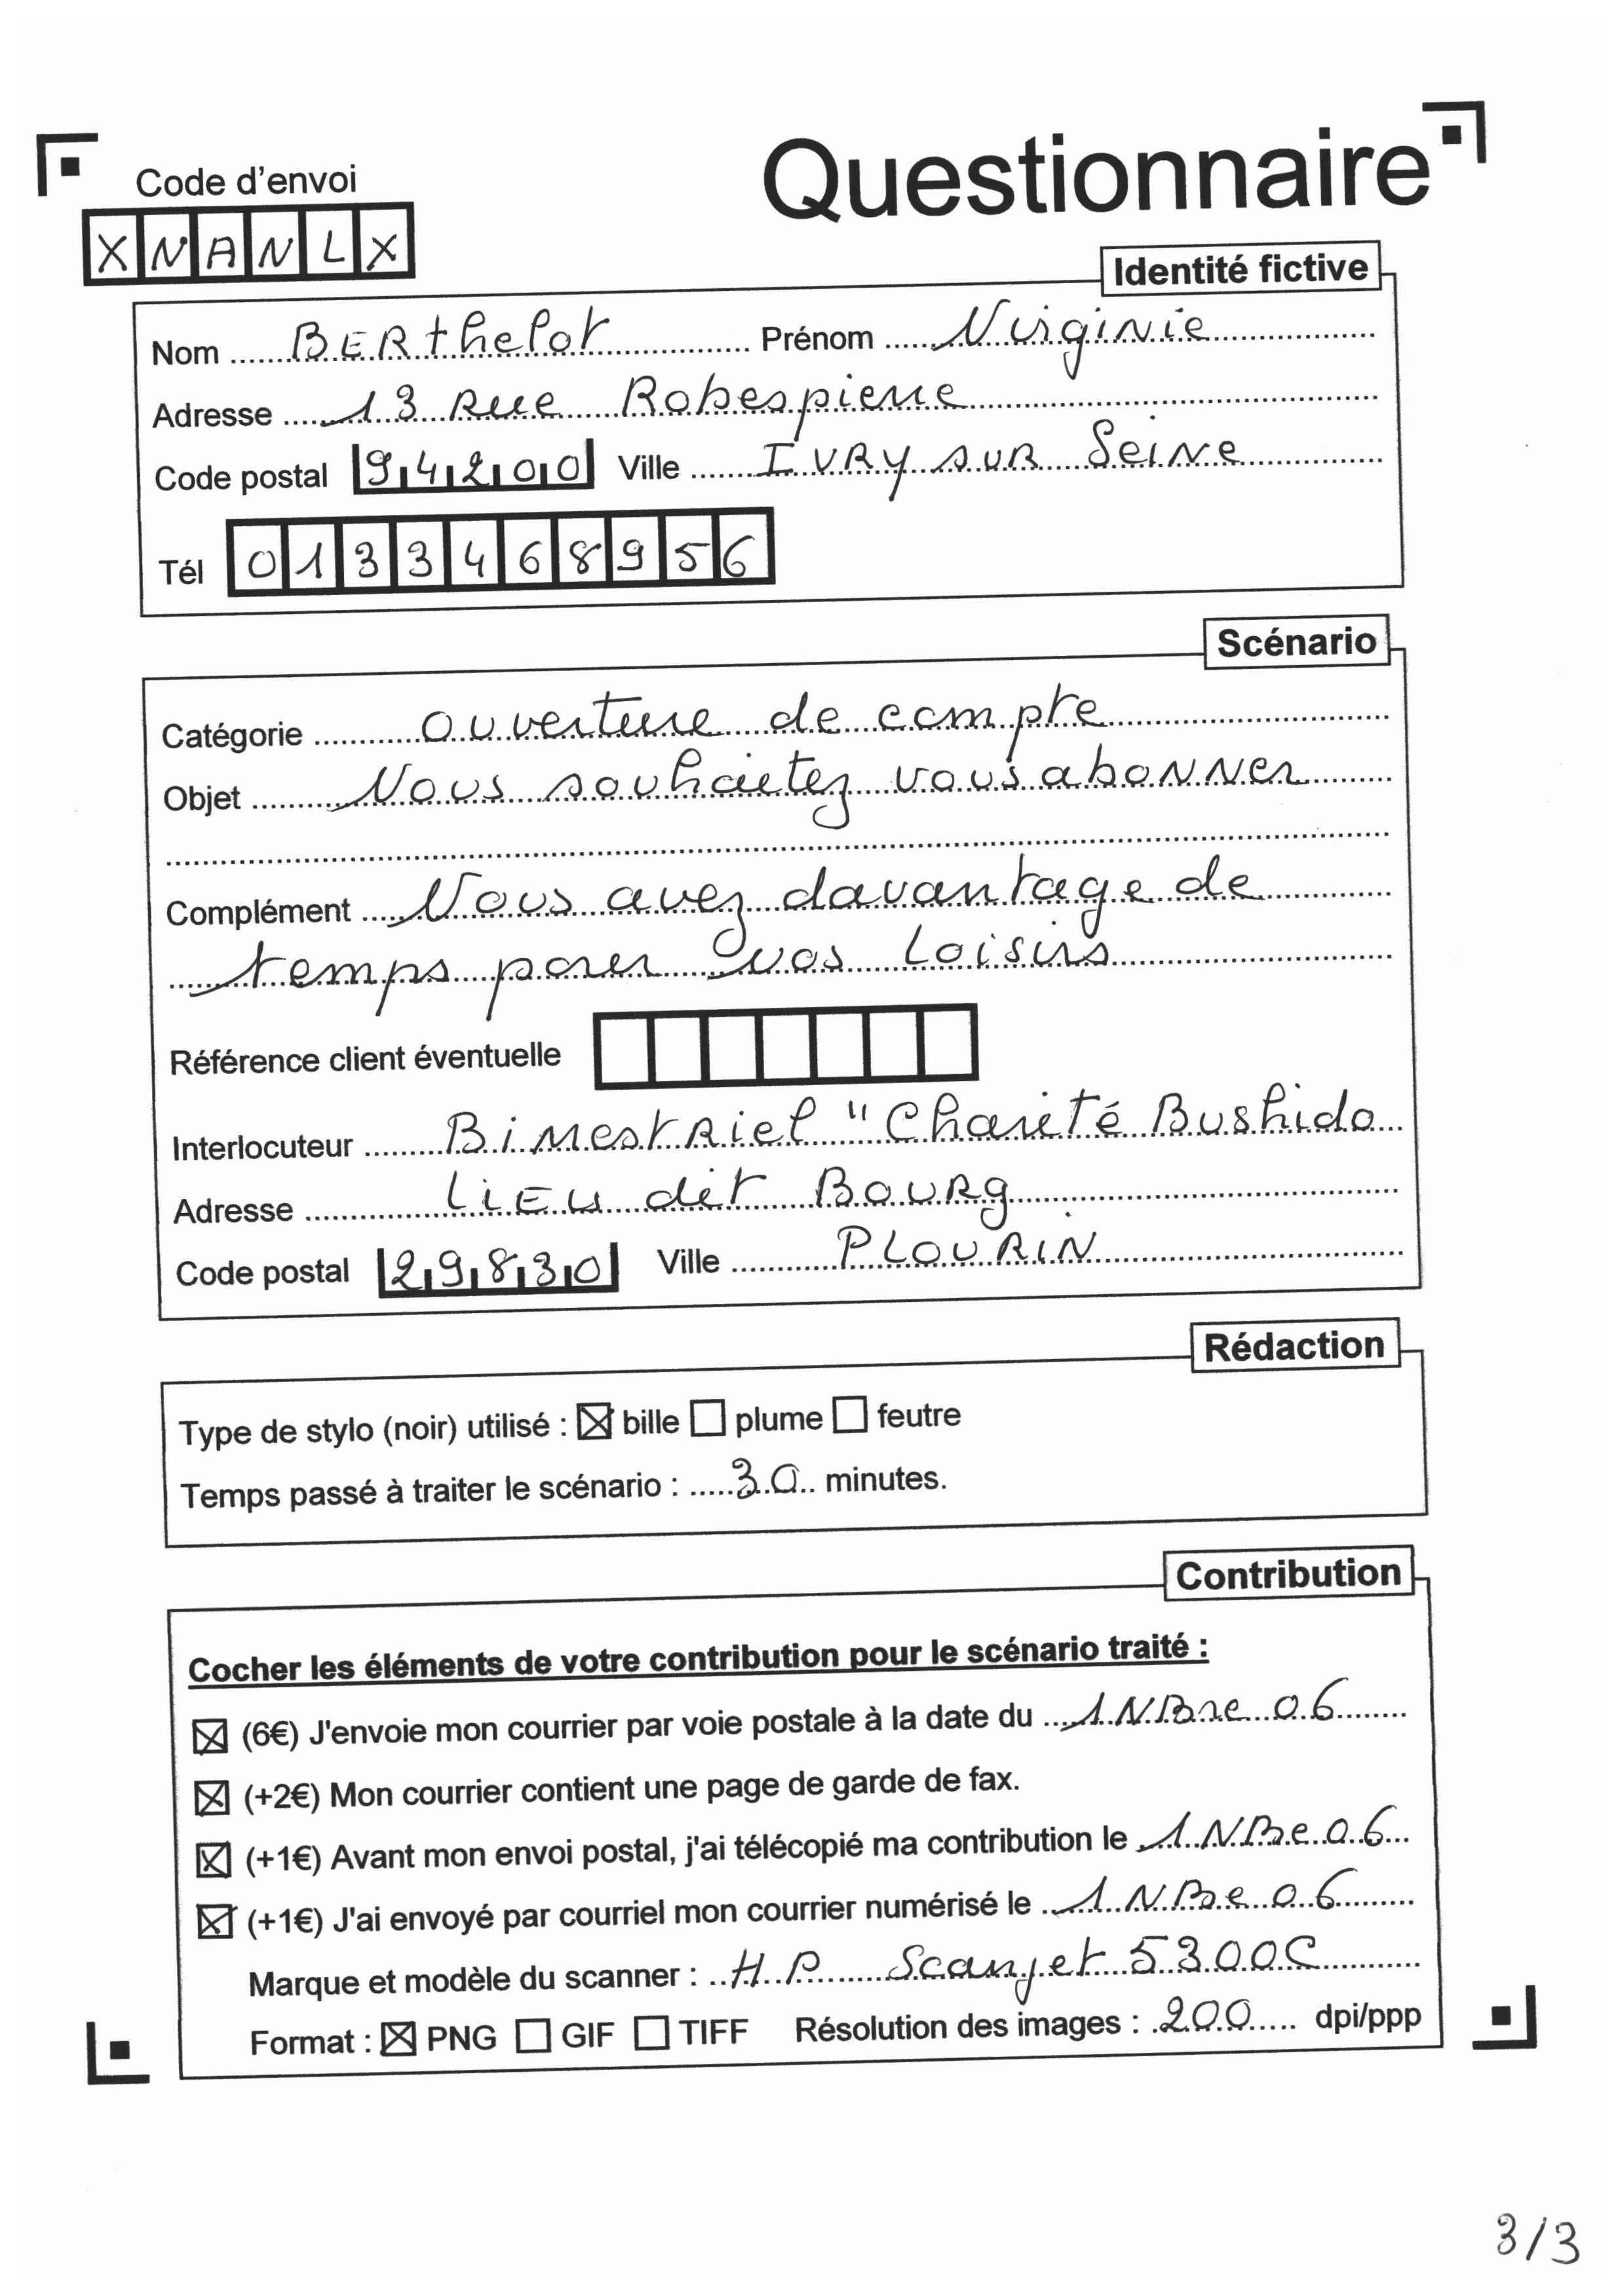 Questionnaire
Code d'envoi
XNANLX
Identité fictive
Nom BERthelot Prénom Virginie
Adresse 13 Rue Robespierre
Code postal 94200 Ville IVRY sur Seine
Tél 0133468956
Scénario
Catégorie ouverture de compte
Objet Vous souhaitez vous abonner
Complément Vous avez davantage de
temps pour vos Loisirs
Référence client éventuelle
Interlocuteur Bimestriel "Charité Bushido
Adresse LiEu dit Bourg
Code postal 29830 Ville PLOURIN
Rédaction
Type de stylo (noir) utilisé : ☒ bille ☐ plume ☐ feutre
Temps passé à traiter le scénario : 30 minutes.
Contribution
Cocher les éléments de votre contribution pour le scénario traité :
☒ (6€) J'envoie mon courrier par voie postale à la date du 1 NBre 06
☒ (+2€) Mon courrier contient une page de garde de fax.
☒ (+1€) Avant mon envoi postal, j'ai télécopié ma contribution le 1 NBre 06
☒ (+1€) J'ai envoyé par courriel mon courrier numérisé le 1 NBre 06
Marque et modèle du scanner : HP Scanjet 5300C
Format : ☒ PNG ☐ GIF ☐ TIFF Résolution des images : 200 dpi/ppp
3/3